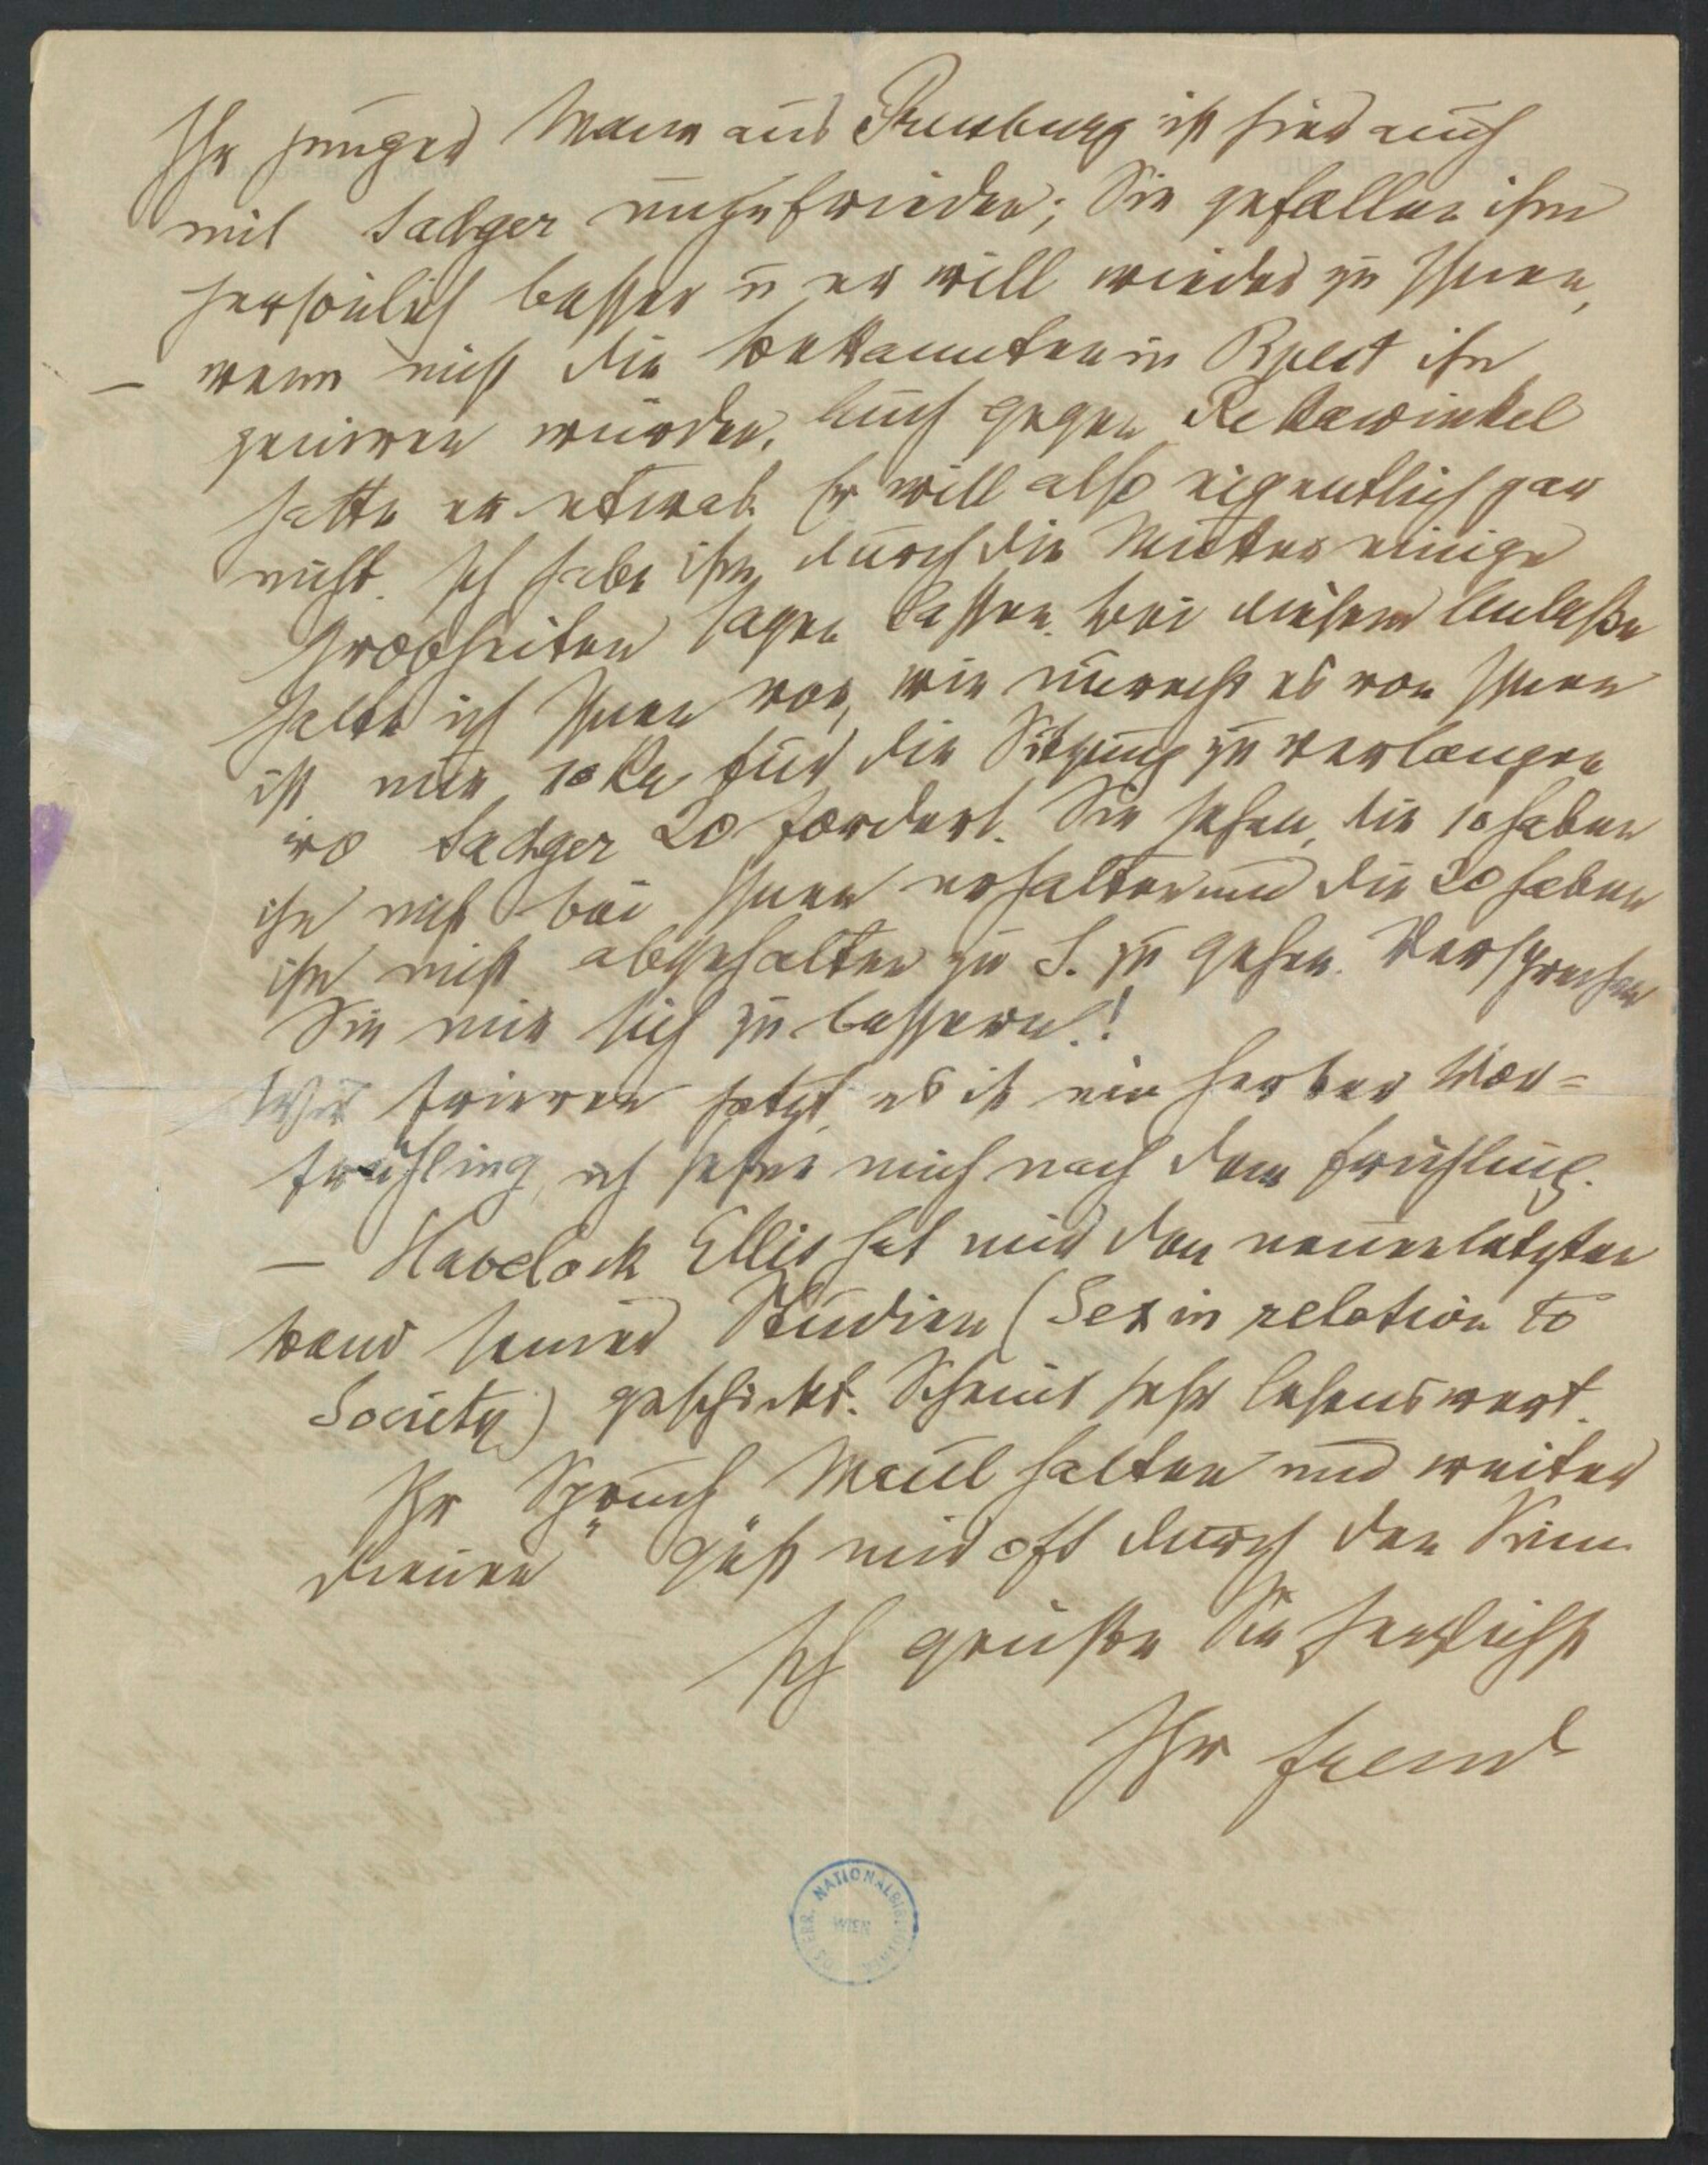 Ihr junger Mann aus Pressburg ist hier auch
mit Sadger unzufrieden; Sie gefallen ihm
persönlich besser u er will wieder zu Ihnen,
– wenn nicht die Bekannten in Bpest ihn
geniren würden. Auch gegen Rekawinkel
hatte er etwas. Er will also eigentlich gar
nicht. Ich habe ihm durch die Mutter einige
Grobheiten sagen lassen. Bei diesem Anlaße
halte ich Ihnen vor, wie unrecht es von Ihnen
ist nur 10 Kr für die Sitzung zu verlangen
wo Sadger 20 fordert. Sie sehen, die 10 haben
ihn nicht bei Ihnen erhalten und die 20 haben
ihn nicht abgehalten zu S. zu gehen. Versprechen
Sie mir sich zu bessern!
Wir frieren jetzt, es ist ein herber Vor=
frühling, ich sehne mich nach dem Frühling.
– Havelock Ellis hat mir den neuen letzten
Band seiner Studien (Sex in relation to
Society) geschickt. Scheint sehr lesenswert.
Ihr Spruch Maul halten und weiter
dienen" geht mir oft durch den Sinn
Ich grüße Sie herzlichst
Ihr Freud
ÖSTERR. NATIONALBIBLIOTHEK
WIEN